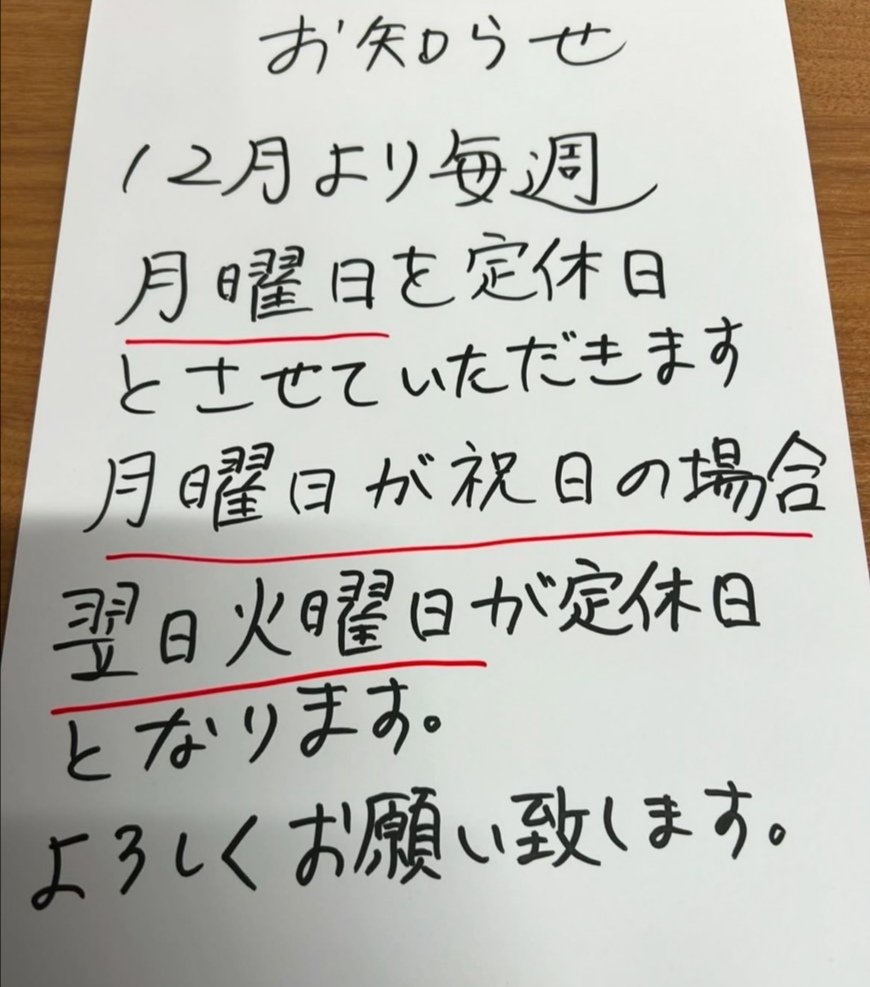 お知らせ
12月より毎週
月曜日を定休日
とさせていただきます
月曜日が祝日の場合
翌日火曜日が定休日
となります。
よろしくお願い致します。